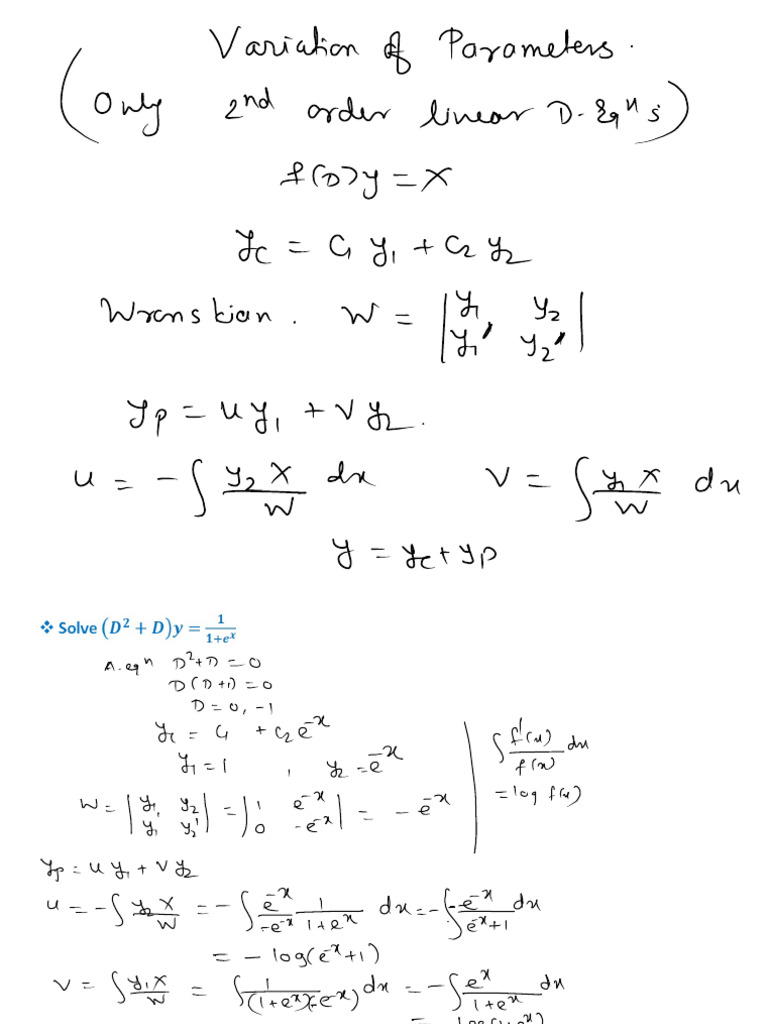 Variation of Parameters.
(Only 2nd order linear D.Eqns)
f(D)y = X
yc = C1 y1 + C2 y2
Wronskian. W = | y1 y2 |
| y1' y2' |
yp = u y1 + v y2.
u = - ∫ y2 X / W dx    v = ∫ y1 X / W dx
y = yc + yp
❖ Solve (D² + D)y = 1/(1+eˣ)
A. eqn D²+D = 0
D(D+1) = 0
D = 0, -1
yc = C1 + C2 e⁻ˣ
y1 = 1 , y2 = e⁻ˣ
∫ f'(x)/f(x) dx
= log f(x)
W = | y1 y2 | = | 1 e⁻ˣ | = - e⁻ˣ
| y1' y2' | | 0 -e⁻ˣ |
yp = u y1 + v y2
u = - ∫ y2 X / W = - ∫ e⁻ˣ/-e⁻ˣ 1/(1+eˣ) dx = - ∫ -e⁻ˣ/(e⁻ˣ+1) dx
= - log(e⁻ˣ+1)
v = ∫ y1 X / W = ∫ 1/((1+eˣ)(-e⁻ˣ)) dx = - ∫ eˣ/(1+eˣ) dx